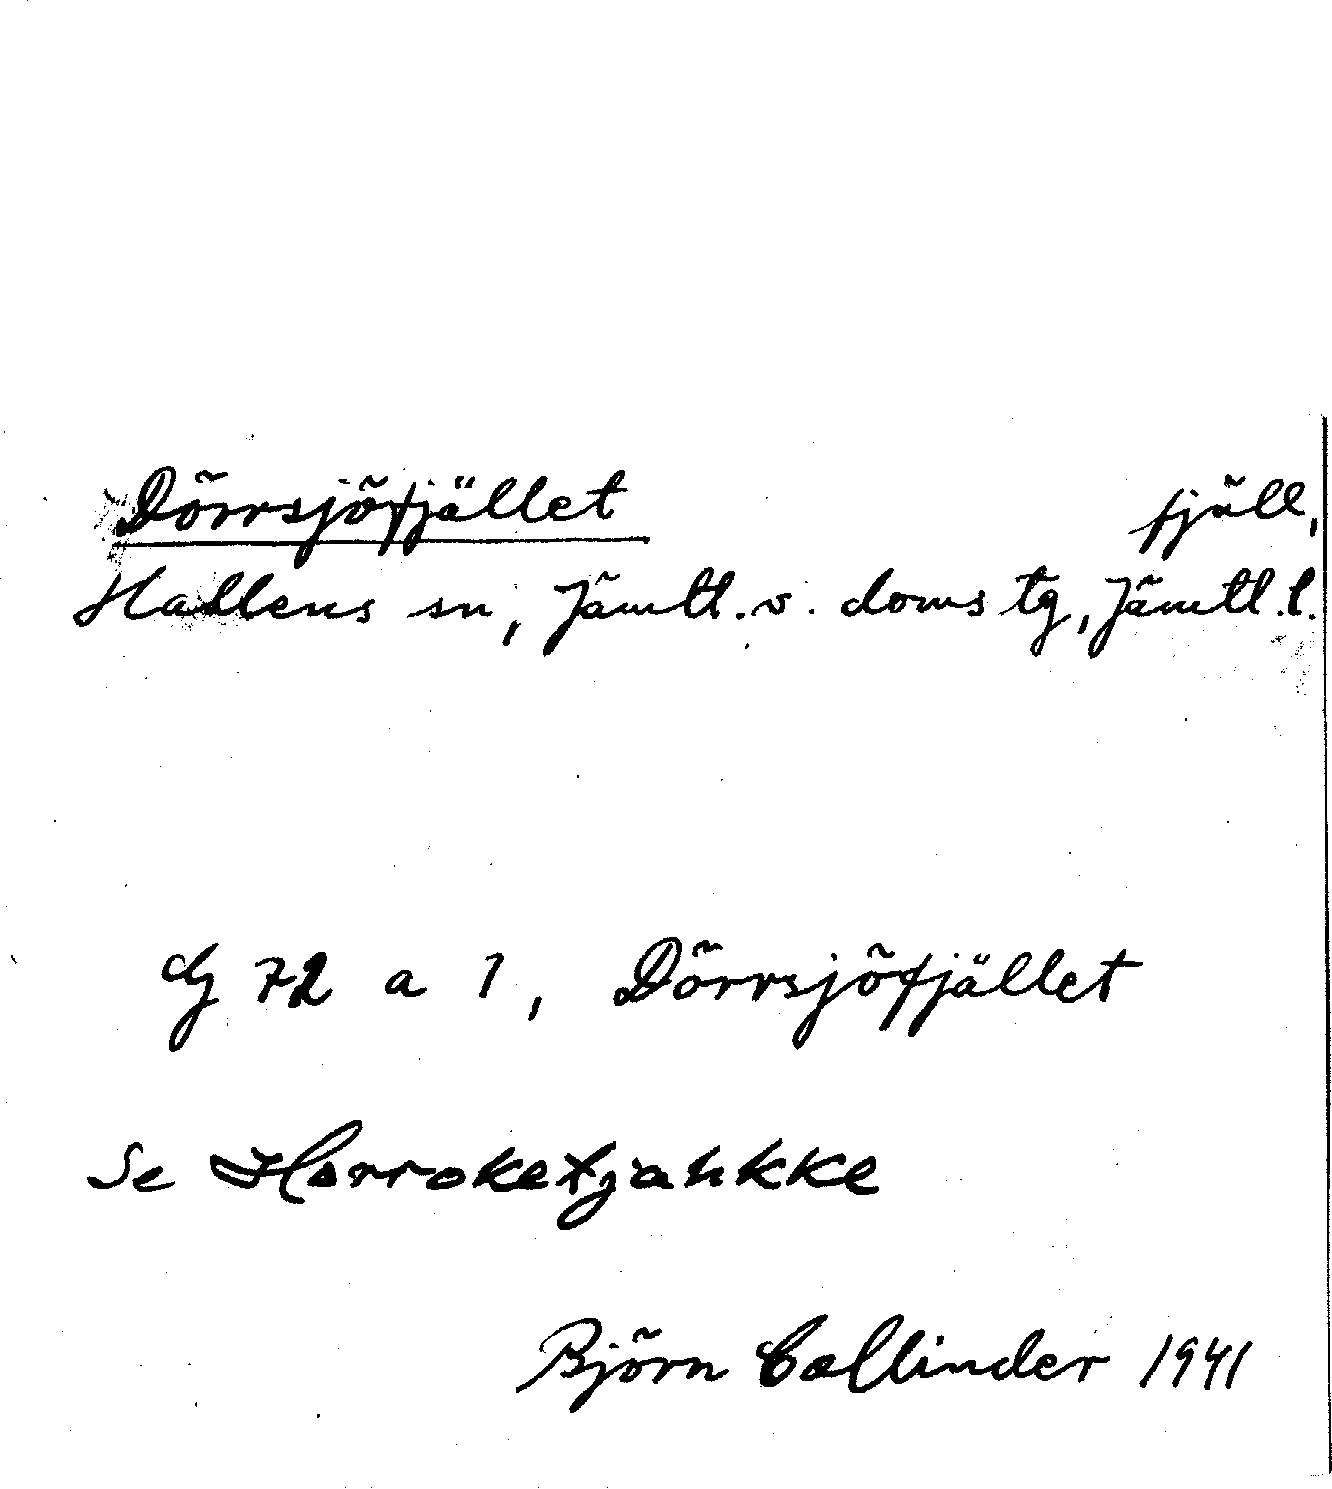 Dörrsjöfjället fjäll,
Hallens sn, Jämtl. v. doms tg, Jämtl. l.
G 72 a 1, Dörrsjöfjället
Se
Björn Collinder 1941